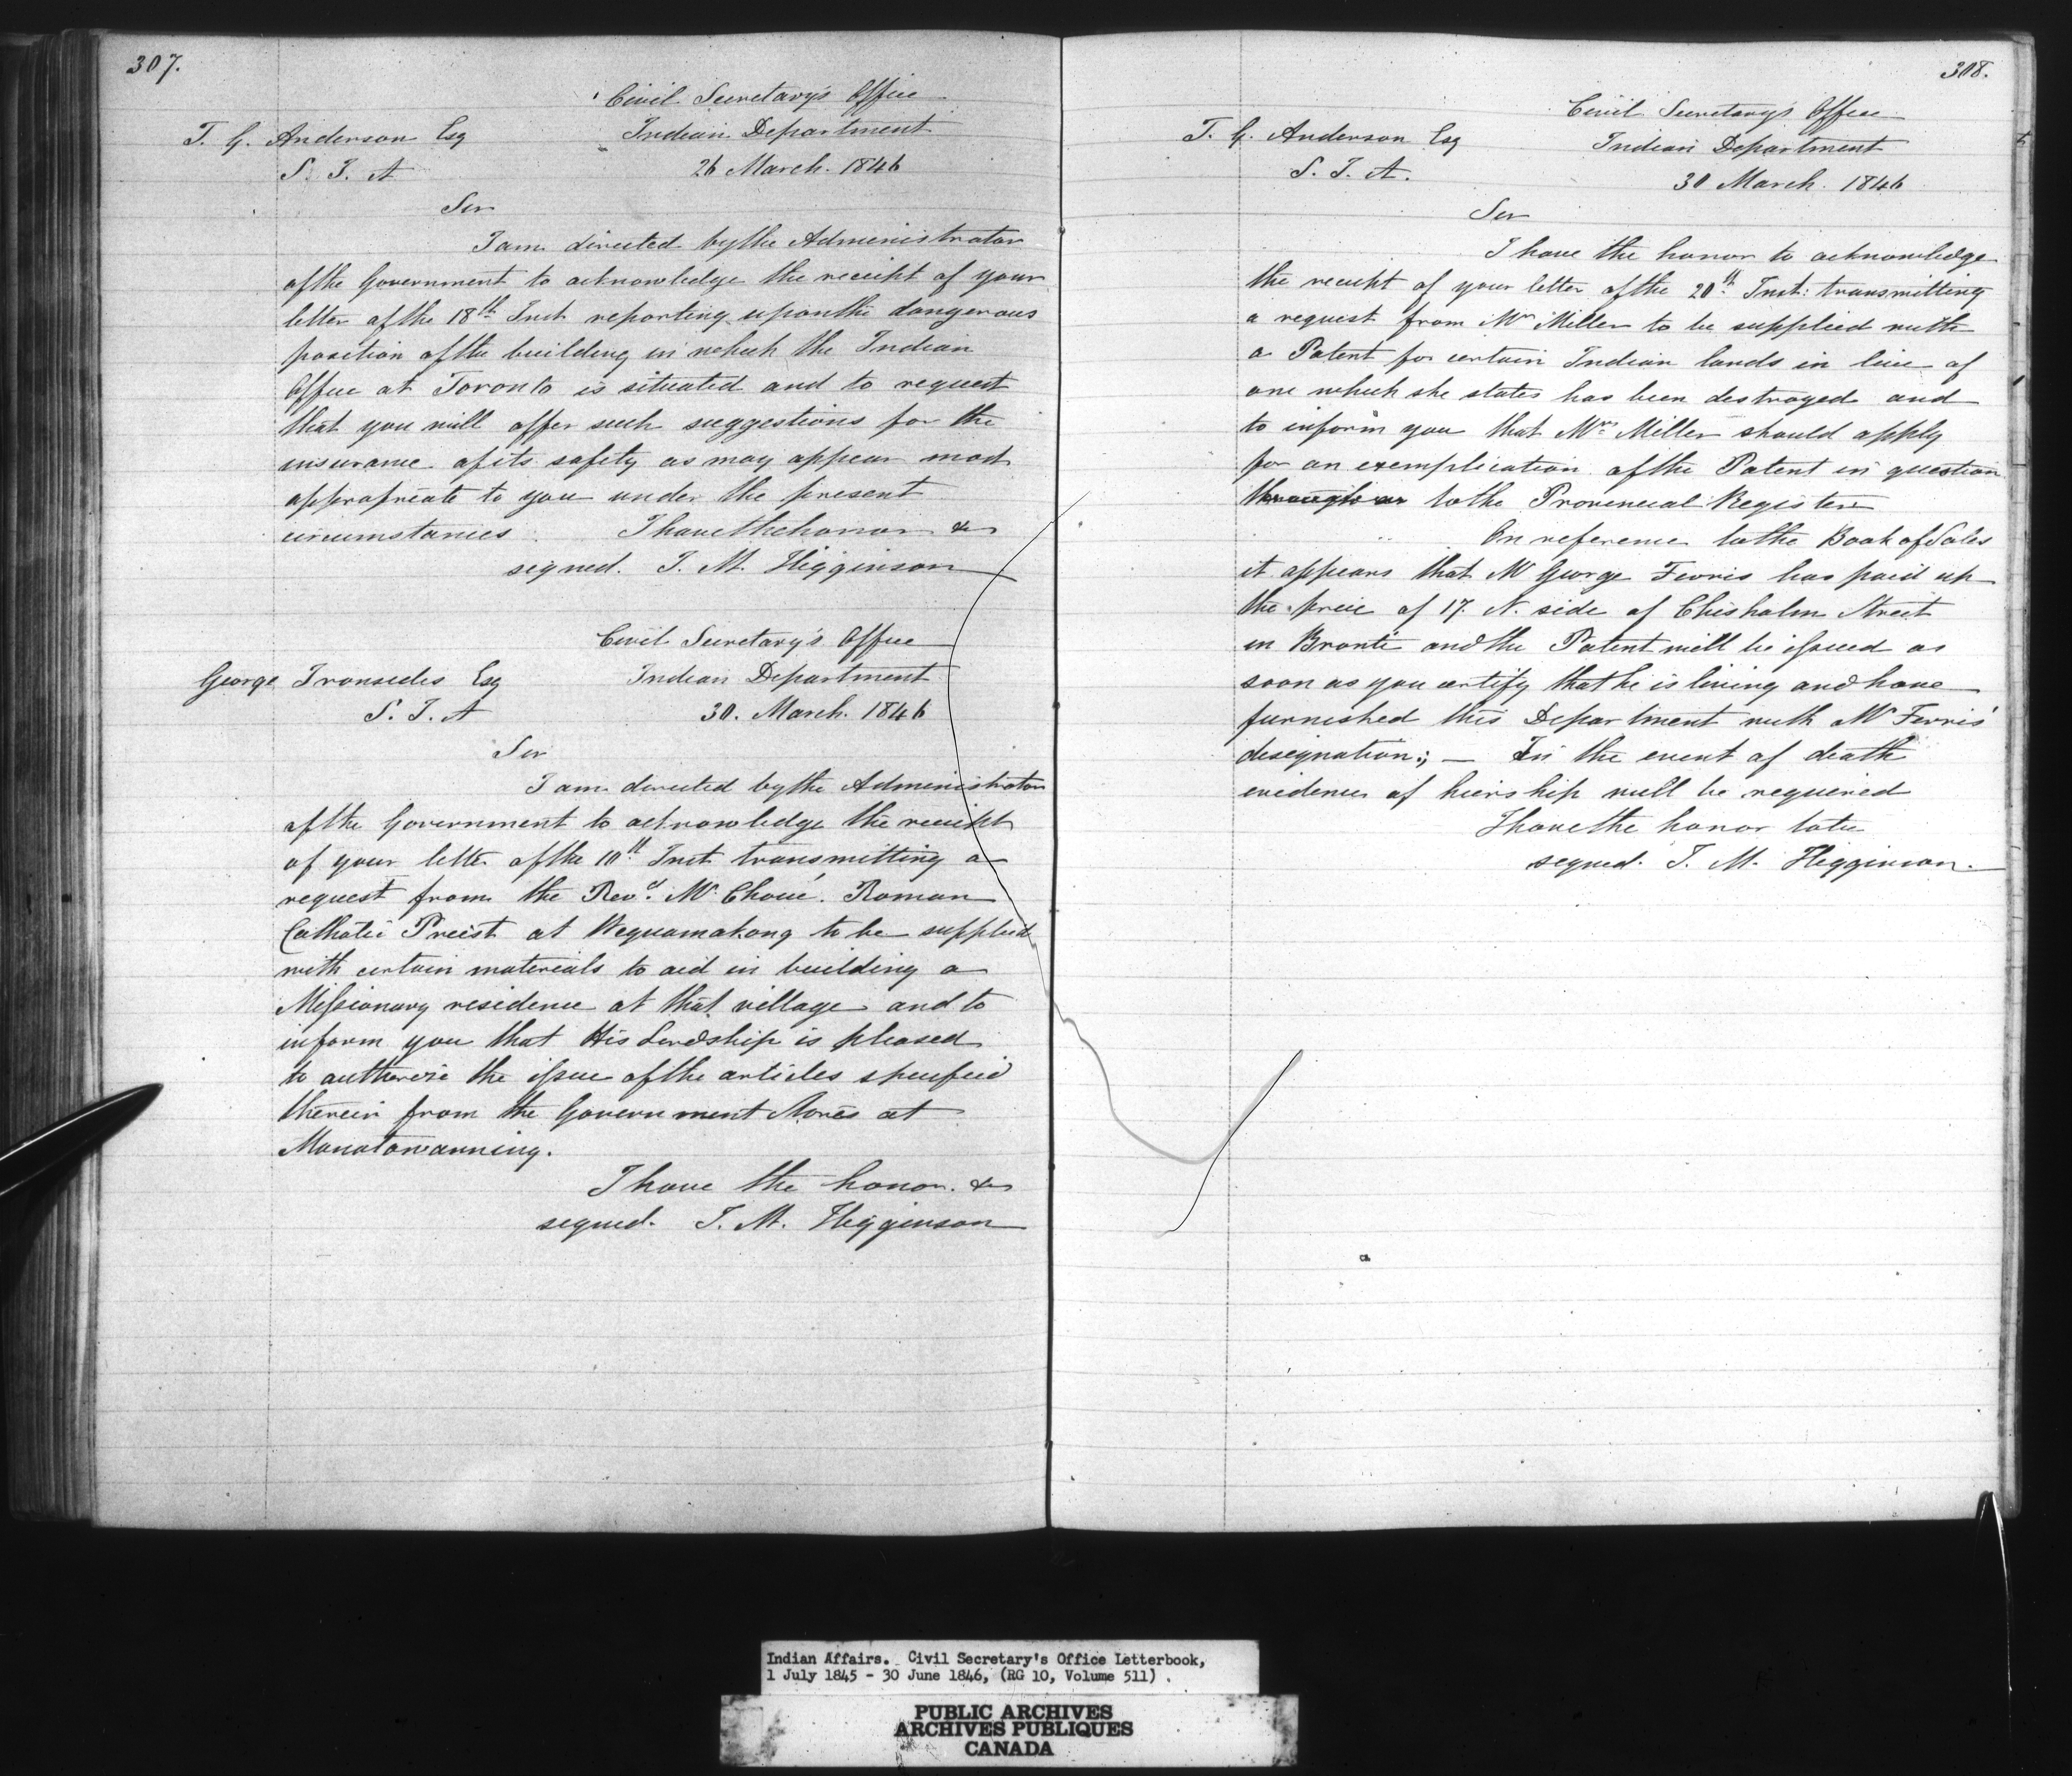 307.
Civil Secretary's Office
T. G. Anderson Esq Indian Department
S. I. A 26 March. 1846
Sir
I am directed by the Administrator
of the Government to acknowledge the receipt of your
letter of the 18th Inst reporting upon the dangerous
position of the building in which the Indian
Office at Toronto is situated and to request
that you will offer such suggestions for the
insurance of its safety as may appear most
appropriate to you under the present
circumstances I have the honor &c
signed. J. M. Higginson
Civil Secretary's Office
George Ironsides Esq Indian Department
S. I. A 30. March. 1846
Sir
I am directed by the Administrator
of the Government to acknowledge the receipt
of your letter of the 10th Inst transmitting a
request from the Revd. Mr Choné. Roman
Catholic Preist at Wequamakong to be supplied
with certain materials to aid in building a
Missionary residence at that village and to
inform you that His Lordship is pleased
to authorize the issue of the articles specified
therein from the Government Stores at
Manatowanning.
I have the honor. &c
signed. J. M. Higginson
308.
Civil Secretary's Office
T. G. Anderson Esq Indian Department
S. I. A. 30 March. 1846
Sir
I have the honor to acknowledge
the receipt of your letter of the 20th Inst: transmitting
a request from Mrs Miller to be supplied with
a Patent for certain Indian lands in lieu of
one which she states has been destroyed and
to inform you that Mrs Miller should apply
for an exemplication of the Patent in question
to the Provincial Register
On reference to the Book of Sales
it appears that Mr George Ferris has paid up
the price of 17. N. side of Chisholm Street
in Bronté and the Patent will be issued as
soon as you certify that he is living and have
furnished this Department with Mr Ferris'
designation; — In the event of death
evidence of heirship will be required
I have the honor to be
signed. J. M. Higginson.
Indian Affairs. Civil Secretary's Office Letterbook,
1 July 1845 - 30 June 1846, (RG 10, Volume 511) .
PUBLIC ARCHIVES
ARCHIVES PUBLIQUES
CANADA